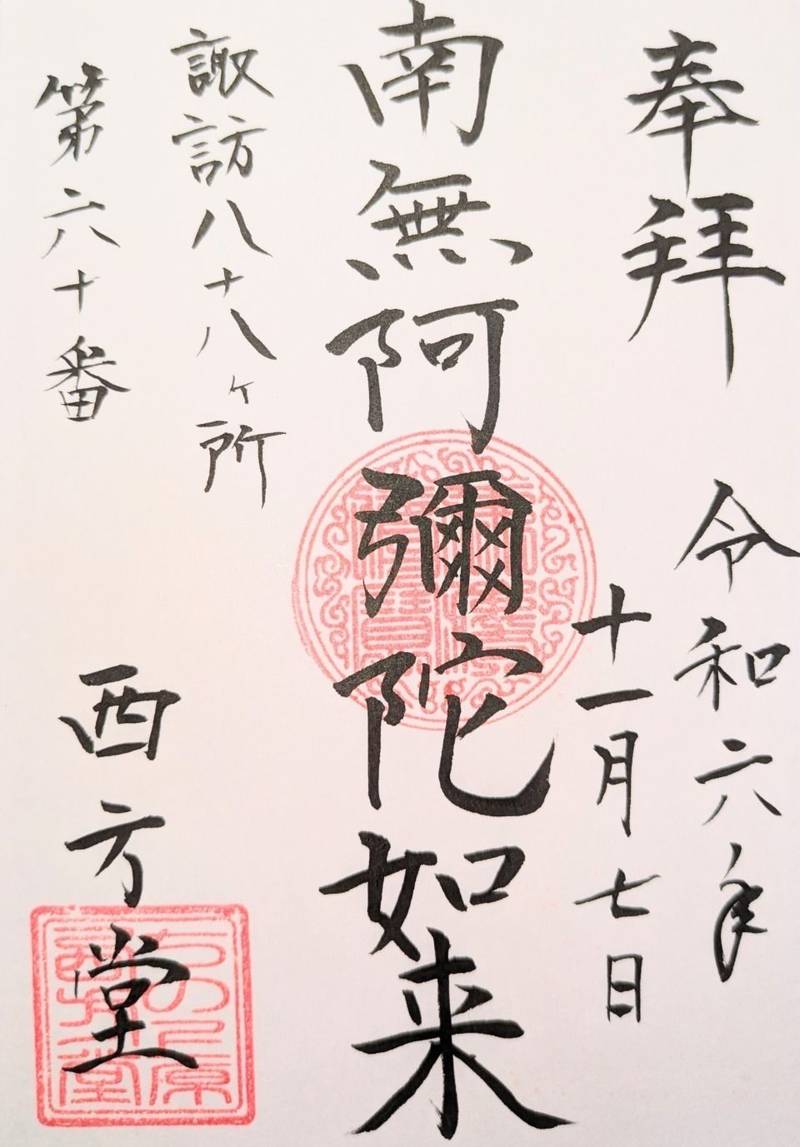 奉拜
令和六年
十一月七日
南無阿彌陀如来
諏訪八十八ヶ所
第六十番
西方堂